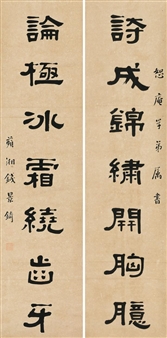 恕庵学弟属書
詩成錦繡開胸臆
論極冰霜繞齒牙
湘錢